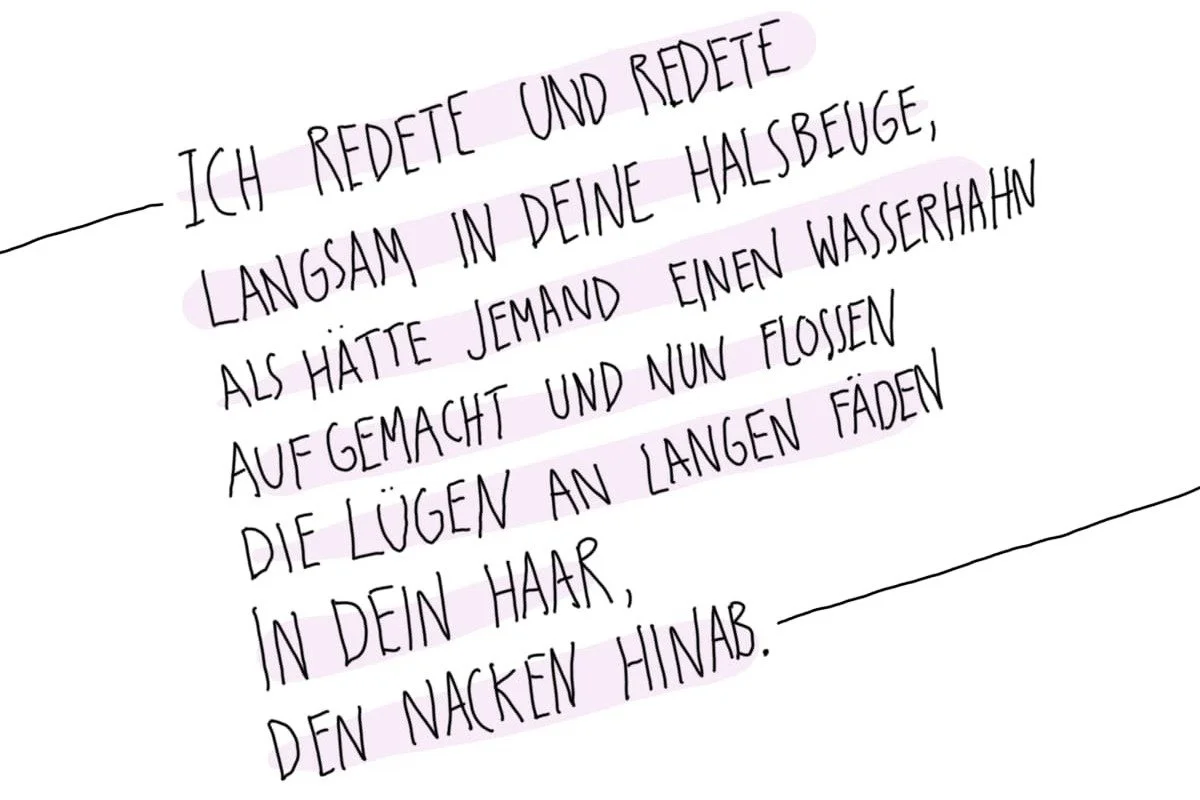 ICH REDETE UND REDETE
LANGSAM IN DEINE HALSBEUGE,
ALS HÄTTE JEMAND EINEN WASSERHAHN
AUFGEMACHT UND NUN FLOSSEN
DIE LÜGEN AN LANGEN FÄDEN
IN DEIN HAAR,
DEN NACKEN HINAB.